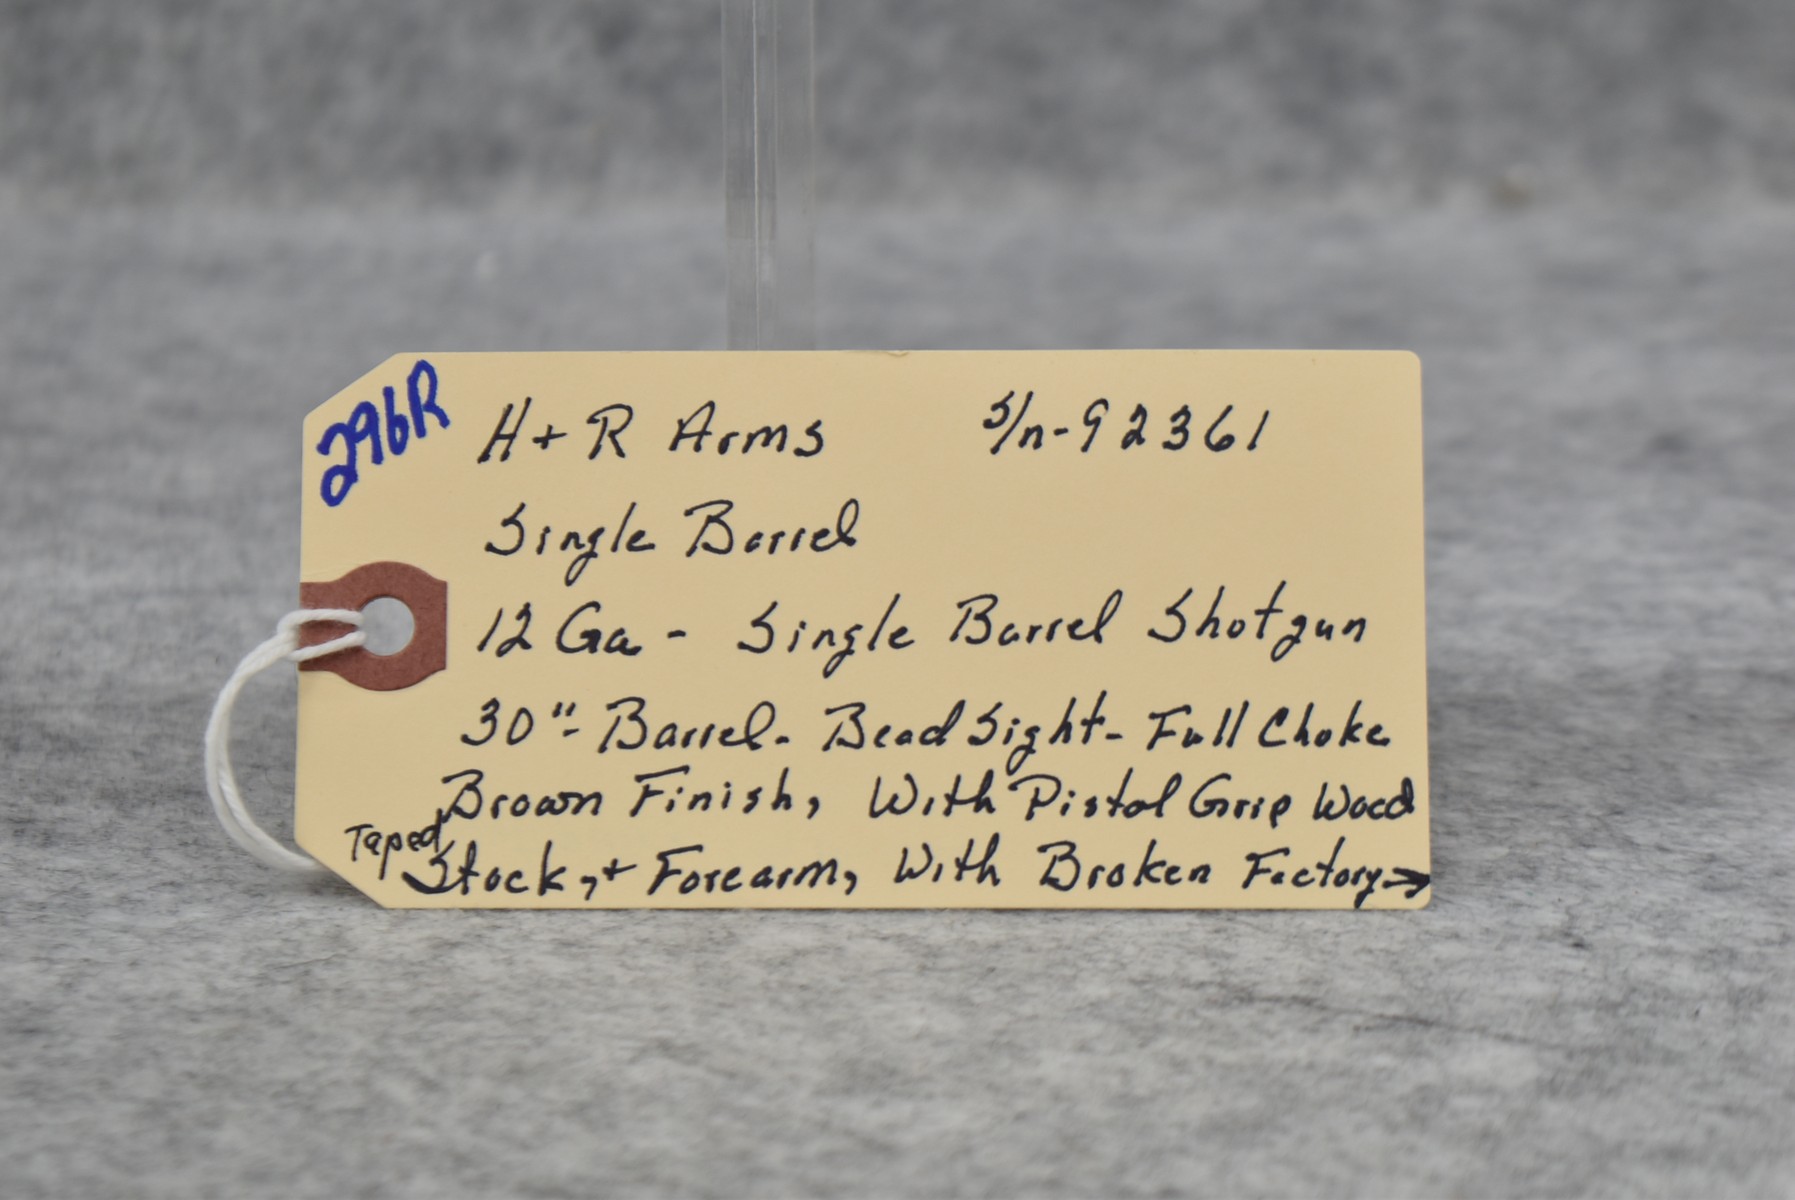 296R
H + R Arms S/n-92361
Single Barrel
12 Ga - Single Barrel Shotgun
30"- Barrel - Bead Sight - Full Choke
Brown Finish, With Pistol Grip Wood
Taped Stock, + Forearm, With Broken Factory→